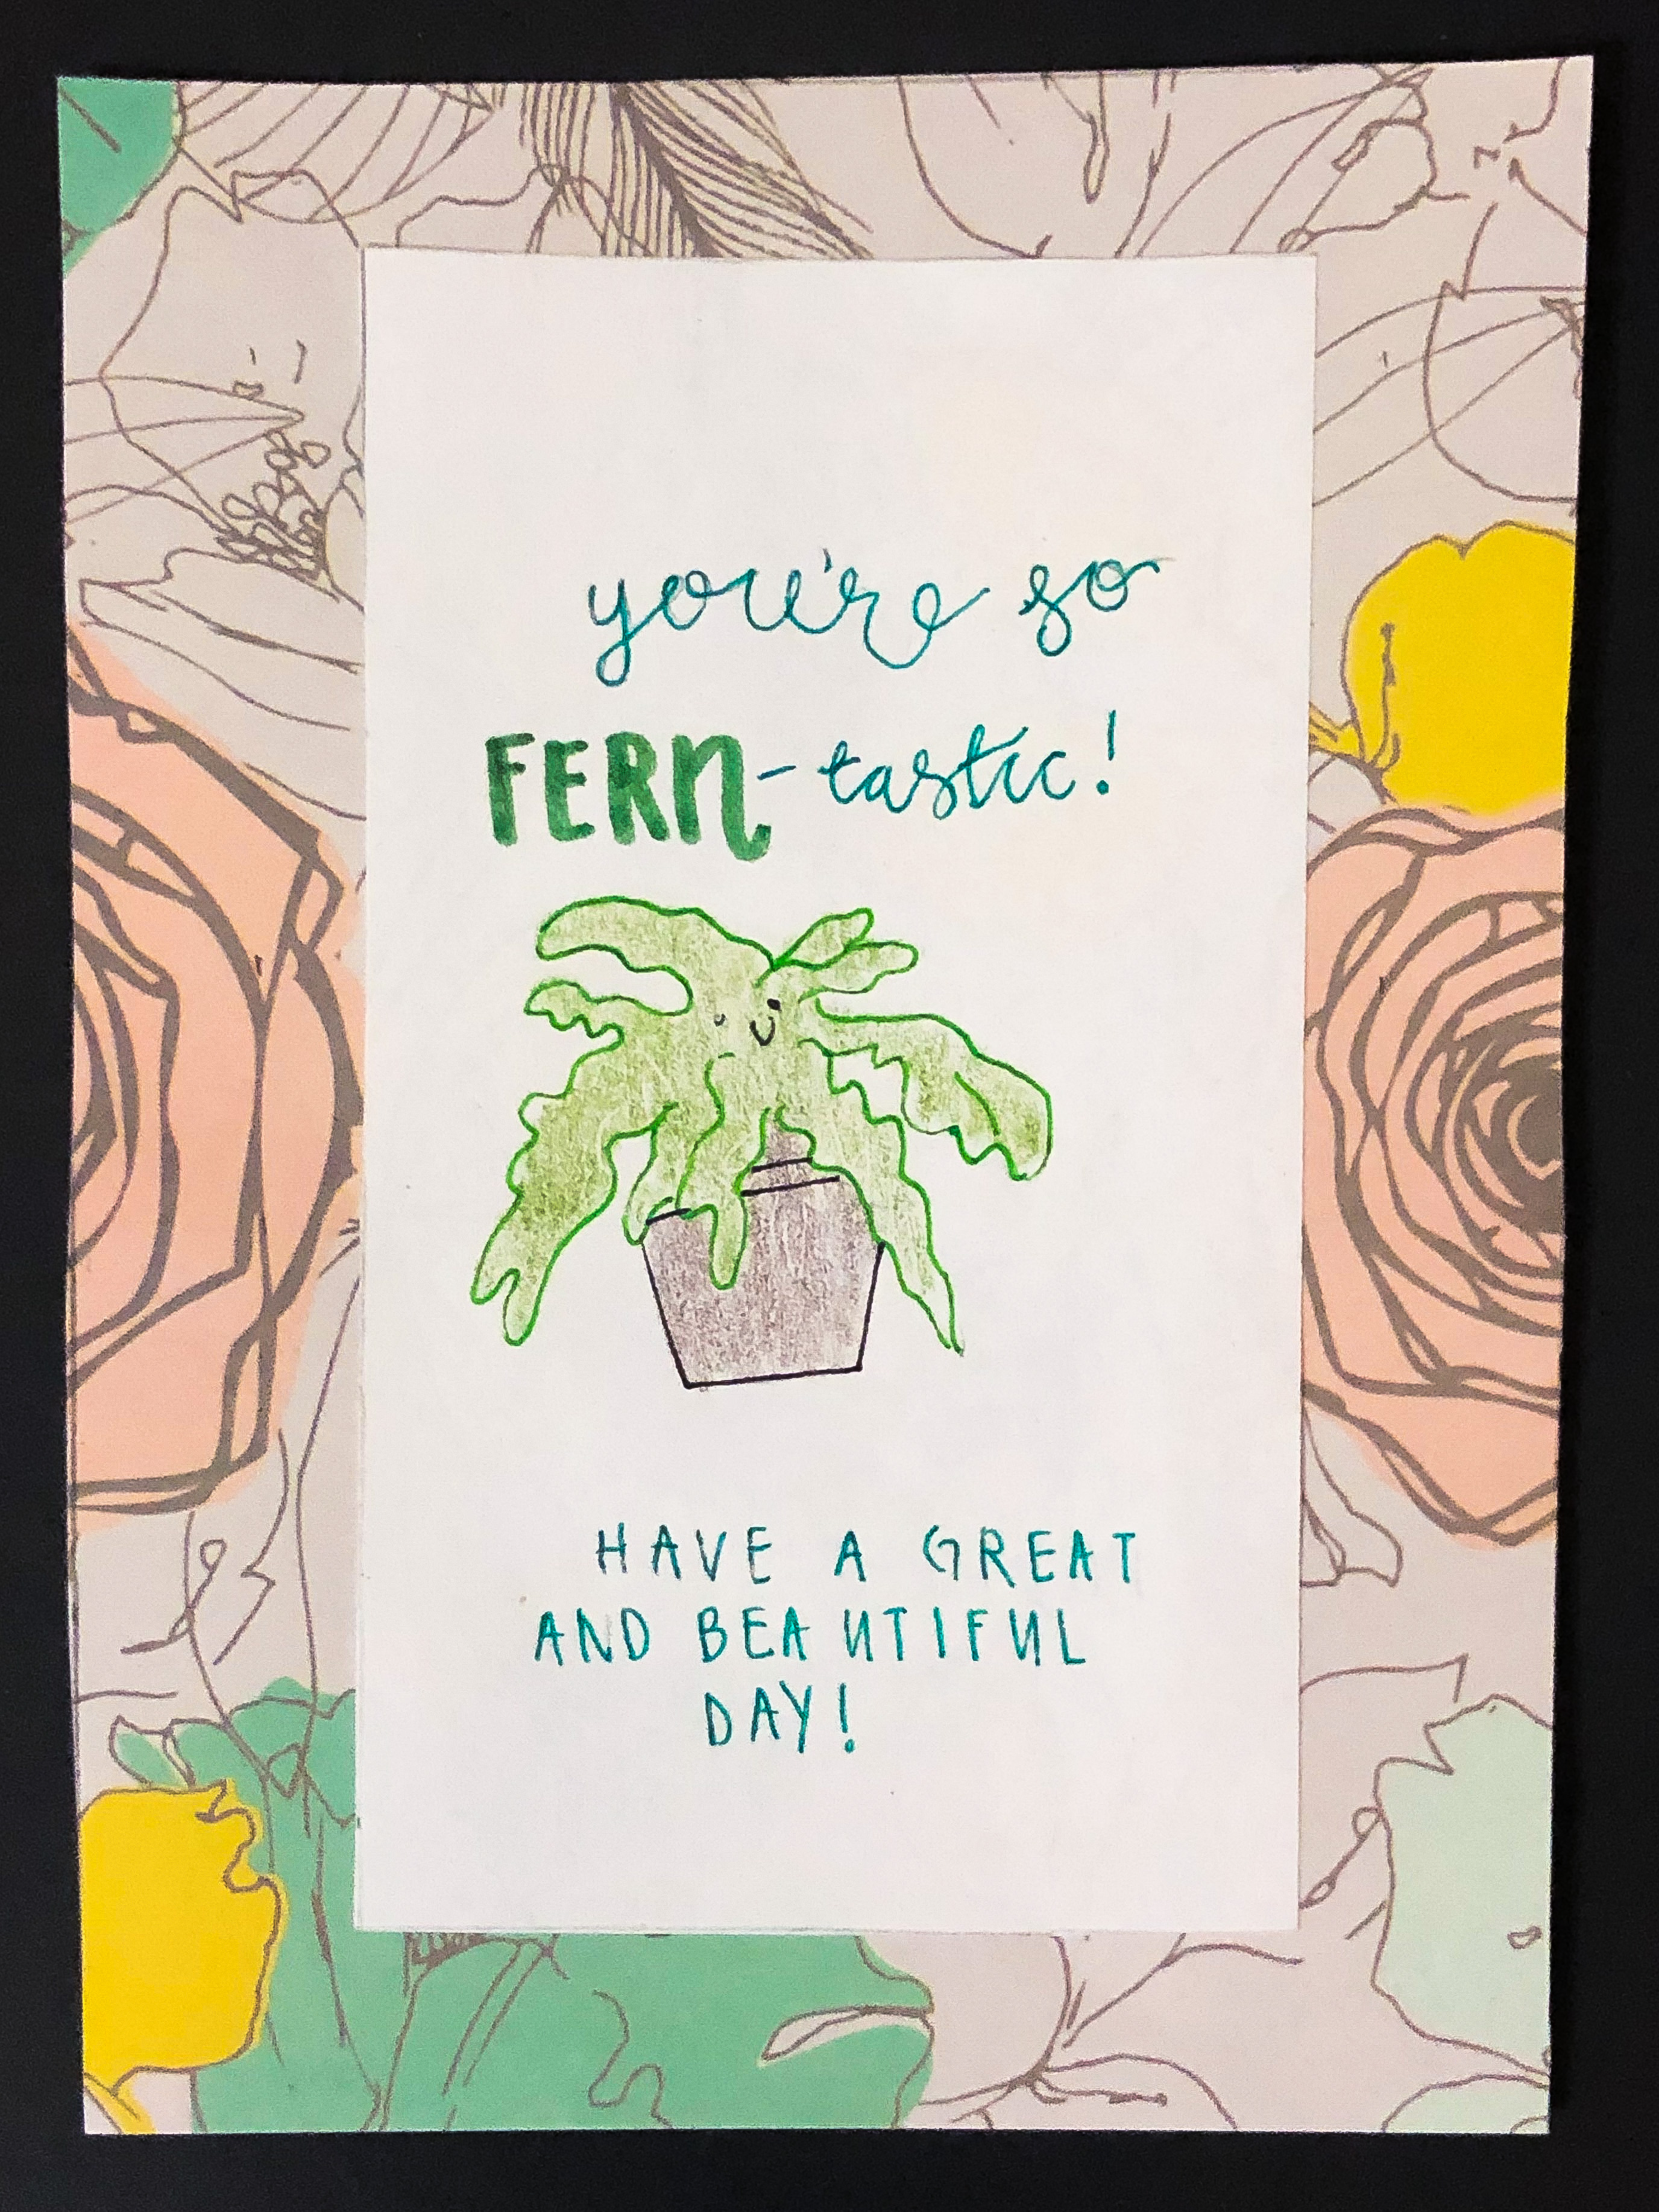 you're so
FERN-tastic!
HAVE A GREAT
AND BEAUTIFUL
DAY!